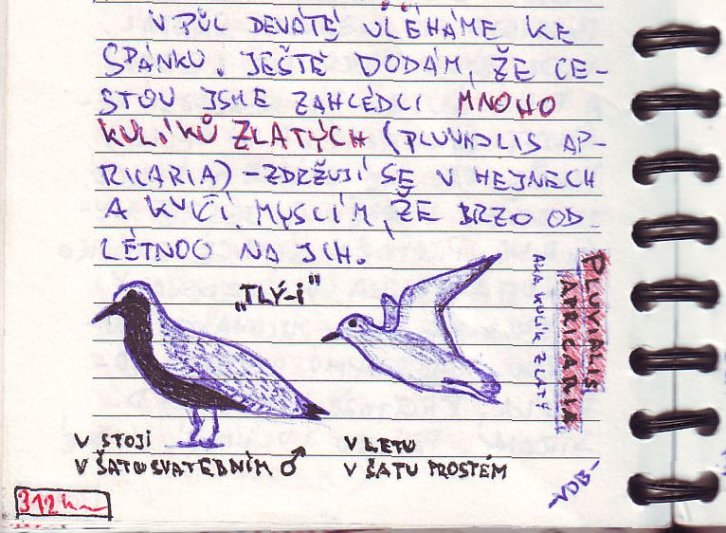 V PŮL DEVÁTÉ ULÉHÁME KE
SPÁNKU. JEŠTĚ DODÁM, ŽE CE-
STOU JSME ZAHLÉDLI MNOHO
KULÍKŮ ZLATÝCH (PLUVIALIS AP-
RICARIA) – ZDRŽUJÍ SE V HEJNECH
A KVIČÍ. MYSLÍM, ŽE BRZO OD-
LÉTNOU NA JIH.
„TLÝ-I"
PLUVIALIS
APRICARIA
AKA KULÍK ZLATÝ
V STOJÍ
V ŠATU SVATEBNÍM ♂
V LETU
V ŠATU PROSTÉM
312 km